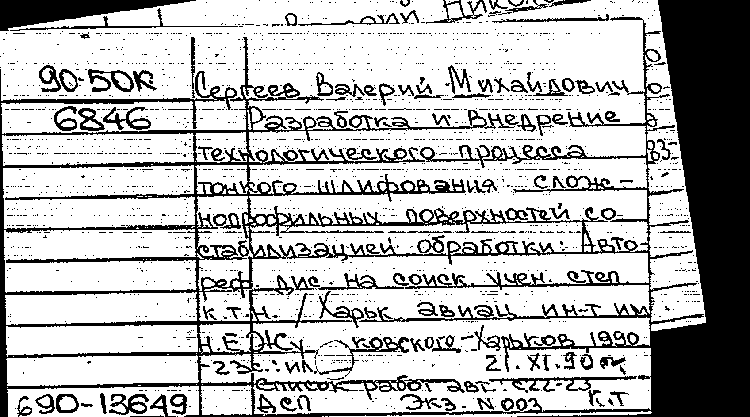 90-50К
Сергеев, Валерий Михайлович
6846
Разработка и внедрение
технологического процесса
тонкого шлифования слож-
нопрофильных поверхностей со
стабилизацией обработки: Авто-
реф. дис. на соиск. учен. степ
к.т.н. / Харьк авиац ин-т им.
Н.Е.Жу ковского.-Харьков, 1990
-23с.: ил.
21.XI.90
Список работ авт.: с.22-23
690-13649
ДСП Экз. N 003 К.Т